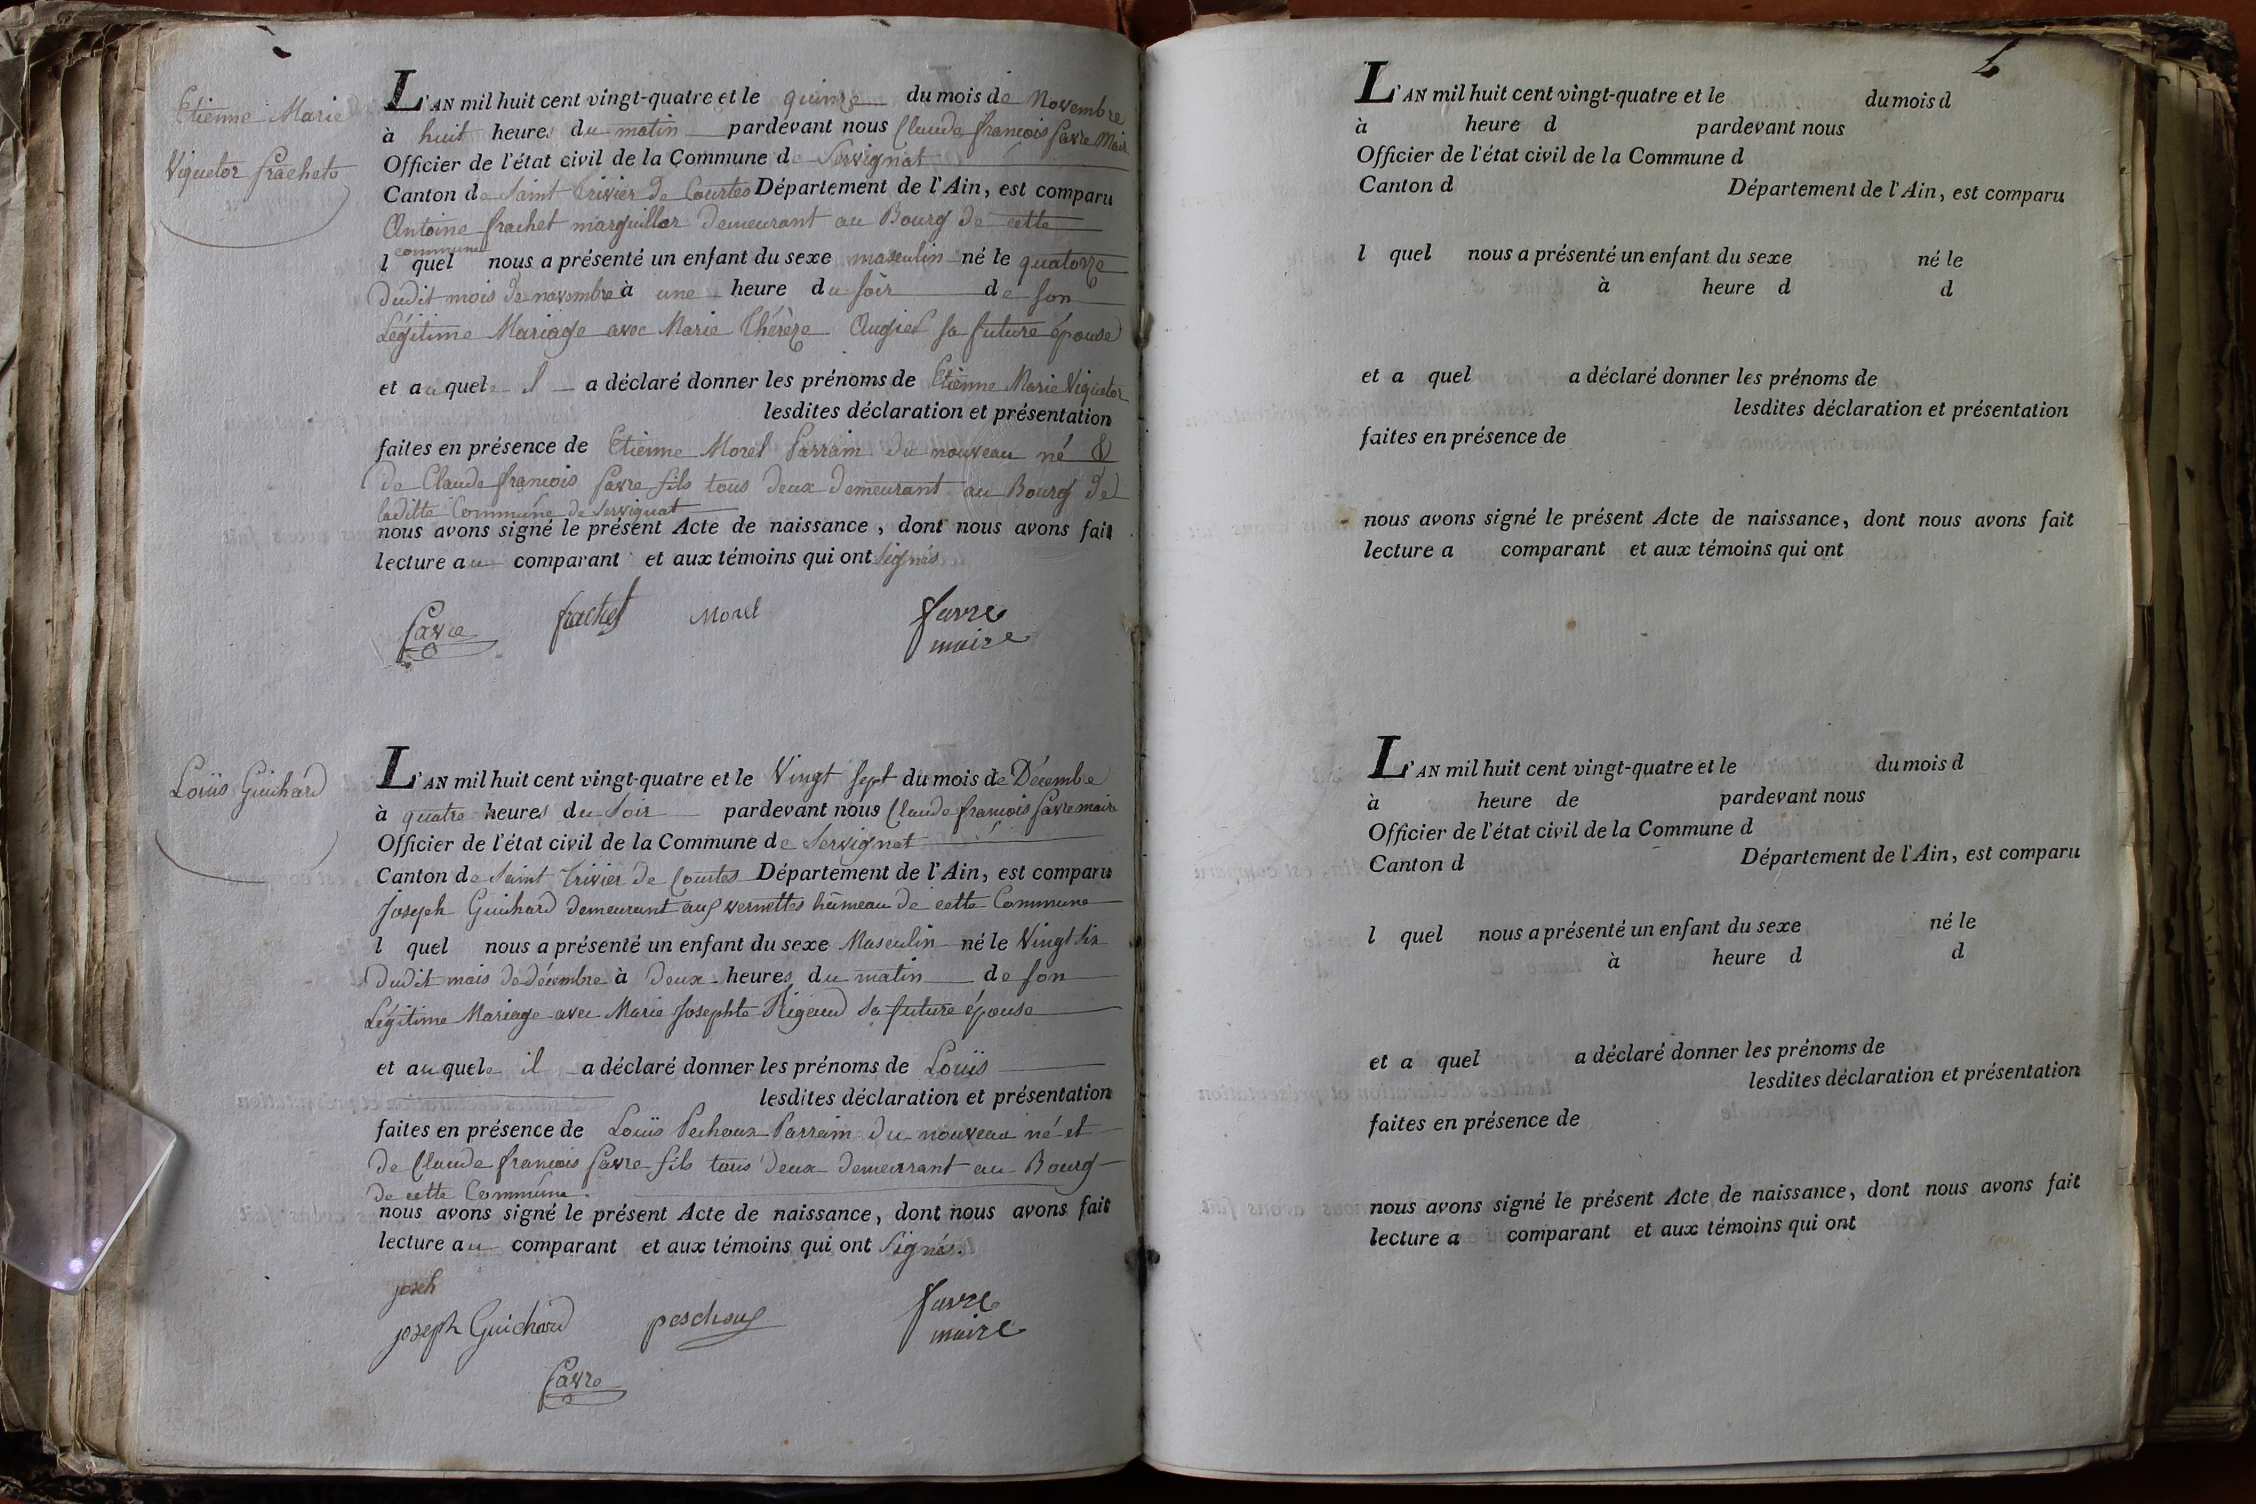 Etienne Marie
Viquetor frachets
L'AN mil huit cent vingt-quatre et le quinze du mois de Novembre
à huit heures du matin pardevant nous Claude françois favre Mair
Officier de l'état civil de la Commune de Servignat
Canton de Saint Trivier de Courtes Département de l'Ain, est comparu
Antoine frachet marguiller demeurant au Bourg de cette
commune
l quel nous a présenté un enfant du sexe masculin né le quatorze
dudit mois de novembre à une heure du soir de son
Légitime Mariage avec Marie Thérèze Augier sa future épouse
et au quele il a déclaré donner les prénoms de Etienne Marie Viquetor
lesdites déclaration et présentation
faites en présence de Etienne Morel Parrain du nouveau né &
de Claude françois favre fils tous deux demeurant au Bourg de
laditte Commune de Servignat
nous avons signé le présent Acte de naissance, dont nous avons fait
lecture au comparant et aux témoins qui ont signés
favre frachet Morel favre
maire
Loüis Guichard
L'AN mil huit cent vingt-quatre et le Vingt sept du mois de Décembre
à quatre heures du Soir pardevant nous Claude françois favre maire
Officier de l'état civil de la Commune de Servignat
Canton de Saint Trivier de Courtes Département de l'Ain, est comparu
Joseph Guichard demeurant aux vernettes hameau de cette Commune
l quel nous a présenté un enfant du sexe Masculin né le Vingt six
dudit mois de décembre à deux heures du matin de son
Légitime Mariage avec Marie Josephte Rigaud sa future épouse
et au quele il a déclaré donner les prénoms de Loüis
lesdites déclaration et présentation
faites en présence de Loüis Pechoux Parrain du nouveau né et
de Claude françois favre fils tous deux demeurant au Bourg
de cette Commune.
nous avons signé le présent Acte de naissance, dont nous avons fait
lecture au comparant et aux témoins qui ont Signés.
joseh
joseph Guichard peschoux favre
maire
favre
L'AN mil huit cent vingt-quatre et le du mois d
à heure d pardevant nous
Officier de l'état civil de la Commune d
Canton d Département de l'Ain, est comparu
l quel nous a présenté un enfant du sexe né le
à heure d d
et a quel a déclaré donner les prénoms de
lesdites déclaration et présentation
faites en présence de
nous avons signé le présent Acte de naissance, dont nous avons fait
lecture a comparant et aux témoins qui ont
L'AN mil huit cent vingt-quatre et le du mois d
à heure de pardevant nous
Officier de l'état civil de la Commune d
Canton d Département de l'Ain, est comparu
l quel nous a présenté un enfant du sexe né le
à heure d d
et a quel a déclaré donner les prénoms de
lesdites déclaration et présentation
faites en présence de
nous avons signé le présent Acte de naissance, dont nous avons fait
lecture a comparant et aux témoins qui ont